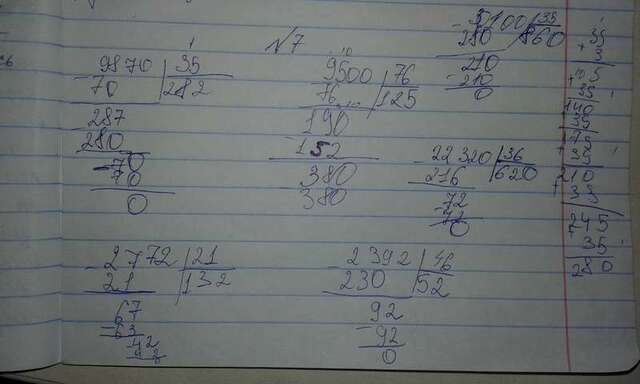 №7
- 9870 | 35
70 | 282
287
280
- 70
70
0
9500 | 76
76 | 125
190
- 152
380
380
- 30100 | 35
280 | 860
210
- 210
0
- 22320 | 36
216 | 620
72
- 72
0
- 2772 | 21
21 | 132
67
- 63
42
42
- 2392 | 46
230 | 52
92
- 92
0
35
+
35
140
35
+ 35
210
+ 35
245
+ 35
280